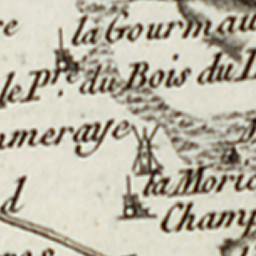 la Gourmau
le Pre. du Bois du
meraye
la Moric
d
Champ